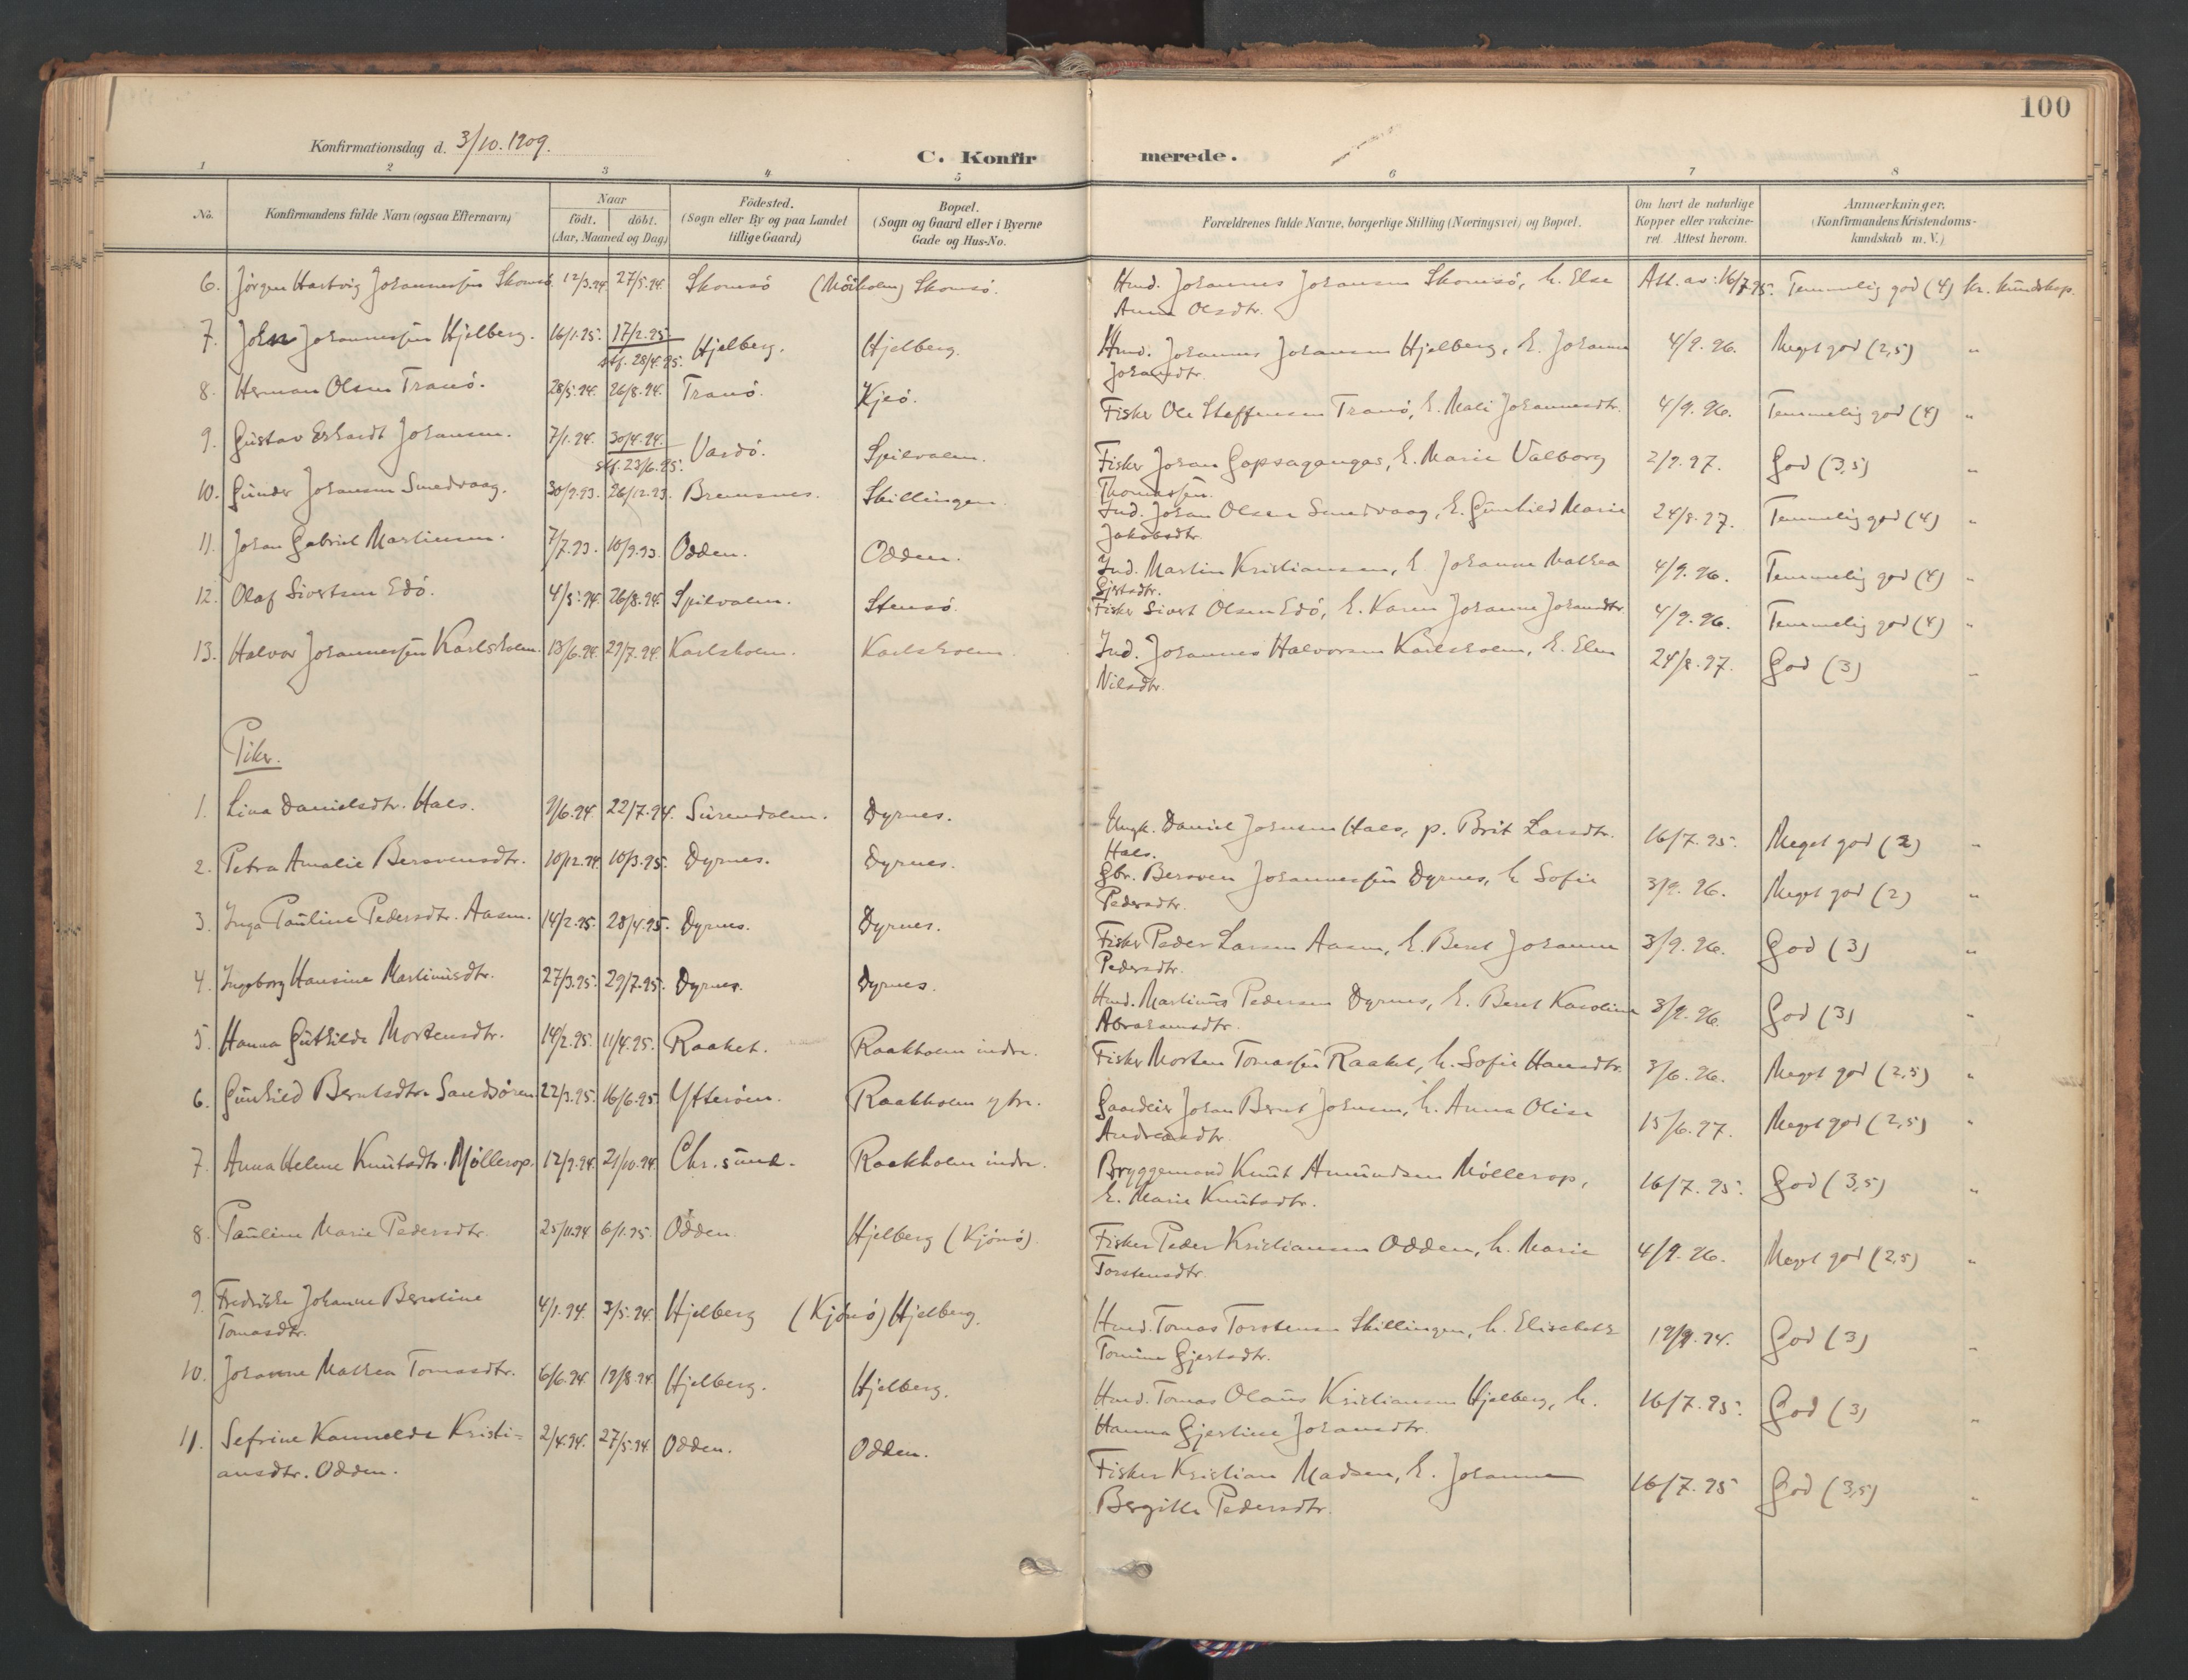 100
Konfirmationsdag d. 3/10. 1909.
C. Konfirmerede.
1 2 3 4 5 6 7 8
No. Konfirmandens fulde Navn (ogsaa Efternavn) Naar født. døbt. (Aar, Maaned og Dag) Fødested. (Sogn eller By og paa Landet tillige Gaard) Bopæl. (Sogn og Gaard eller i Byerne Gade og Hus-No. Forældrenes fulde Navne, borgerlige Stilling (Næringsvei) og Bopæl. Om havt de naturlige Kopper eller vakcineret. Attest herom. Anmærkninger. (Konfirmandens Kristendomskundskab m. V.)
6. Jørgen Hartvig Johannessen Skomsö 12/3.94 27/5.94. Skomsö (Möiholm) Skomsö. Hmd. Johannes Johansen Skomsö, h. Else Att. av: 16/7.95. Temmelig god (4) kr. kundskap.
Anna Olsdtr.
7. John Johannessen Hjelberg. 16/1.95. 17/2.95 Hjelberg. Hjelberg. Hmd. Johannes Johansen Hjelberg, h. Johanna 4/9.96. Meget god (2,5) "
stf. 28/4.95. Johansdtr.
8. Herman Olsen Tranö. 28/5.94. 26/8.94. Tranö. Kjeö. Fisker Ole Steffensen Tranö, h. Mali Johannesdtr. 4/9.96. Temmelig god (4) "
9. Gustav Erhardt Johansen. 7/1.94. 30/4.94. Vardö. Spilvalen. Fisker Johan Gapsagangas, h. Marie Valborg 2/9.97. God (3,5) "
stf. 23/6.95. Thomassen.
10. Gunder Johansen Smedvaag. 30/9.93. 26/12.93. Bremsnes. Skillingen. Ind. Johan Olsen Smedvaag, h. Gunhild Marie 24/8.97. Temmelig god (4) "
Jakobsdtr.
11. Johan Gabriel Martinsen. 7/7.93. 10/9.93. Odden. Odden. Ind. Martin Kristiansen, h. Johanne Mathea 4/9.96. Temmelig god (4) "
Gjertsdtr.
12. Olaf Sivertsen Edö. 4/5.94. 26/8.94. Spilvalen. Stensö. Fisker Sivert Olsen Edö, h. Karen Johanne Johansdtr. 4/9.96. Temmelig god (4) "
13. Halvor Johannessen Karlsholm. 13/6.94. 29/7.94. Karlsholm. Karlsholm. Ind. Johannes Halvorsen Karlsholm, h. Elen 24/8.97. God (3) "
Nilsdtr.
Piker.
1. Lina Danielsdtr. Hals. 9/6.94. 22/7.94. Surendalen. Dyrnes. Ungk. Daniel Johnsen Hals, p. Brit Larsdtr. 16/7.95. Meget god (2) "
Hals.
2. Petra Amalie Bersvensdtr. 10/12.94 10/3.95. Dyrnes. Dyrnes. Gbr. Bersven Johannessen Dyrnes, h. Sofie 3/9.96. Meget god (2) "
Pedersdtr.
3. Inga Pauline Pedersdtr. Aasen. 14/2.95. 28/4.95. Dyrnes. Dyrnes. Fisker Peder Larsen Aasen, h. Beret Johanna 3/9.96. God (3) "
Pedersdtr.
4. Ingeborg Hansine Martinusdtr. 27/3.95. 29/7.95. Dyrnes. Dyrnes. Hmd. Martinus Pedersen Dyrnes, h. Beret Karoline 3/9.96. God (3) "
Abrahamsdtr.
5. Hanna Guthilde Mortensdtr. 14/2.95. 11/4.95. Raaket. Raakholm indre. Fisker Morten Tomassen Raaket, h. Sofie Hansdtr. 3/6.96. Meget god (2,5) "
6. Gunhild Berntsdtr. Sandsören 22/3.95. 16/6.95. Ytteröen. Raakholm ytre. Gaardeier Johan Bernt Johnsen, h. Anna Olise 15/6.97. Meget god (2,5) "
Andreasdtr.
7. Anna Helene Knutsdtr. Møllerop. 12/9.94. 21/10.94. Chr.sund. Raakholm indre. Bryggemand Knut Amundsen Møllerop, 16/7.95. God (3,5) "
h. Marie Knutsdtr.
8. Pauline Marie Pedersdtr. 25/11.94 6/1.95. Odden. Hjelberg (Kjönö). Fisker Peder Kristiansen Odden, h. Marie 4/9.96. Meget god (2,5) "
Torstensdtr.
9. Fredrikke Johanne Berntine 4/1.94. 3/5.94. Hjelberg (Kjönö) Hjelberg. Hmd. Tomas Torstensen Skillingen, h. Elisabeth 19/9.94. God (3) "
Tomasdtr. Tomine Gjertsdtr.
10. Johanne Mathea Tomasdtr. 6/6.94. 19/8.94. Hjelberg. Hjelberg. Hmd. Tomas Olaus Kristiansen Hjelberg, h. 16/7.95. God (3) "
Hanna Gjertine Johansdtr.
11. Sefrine Kannelde Kristi= 2/4.94. 27/5.94. Odden. Odden. Fisker Kristian Madsen, h. Johanna 16/7.95 God (3,5) "
ansdtr. Odden. Bergitte Pedersdtr.